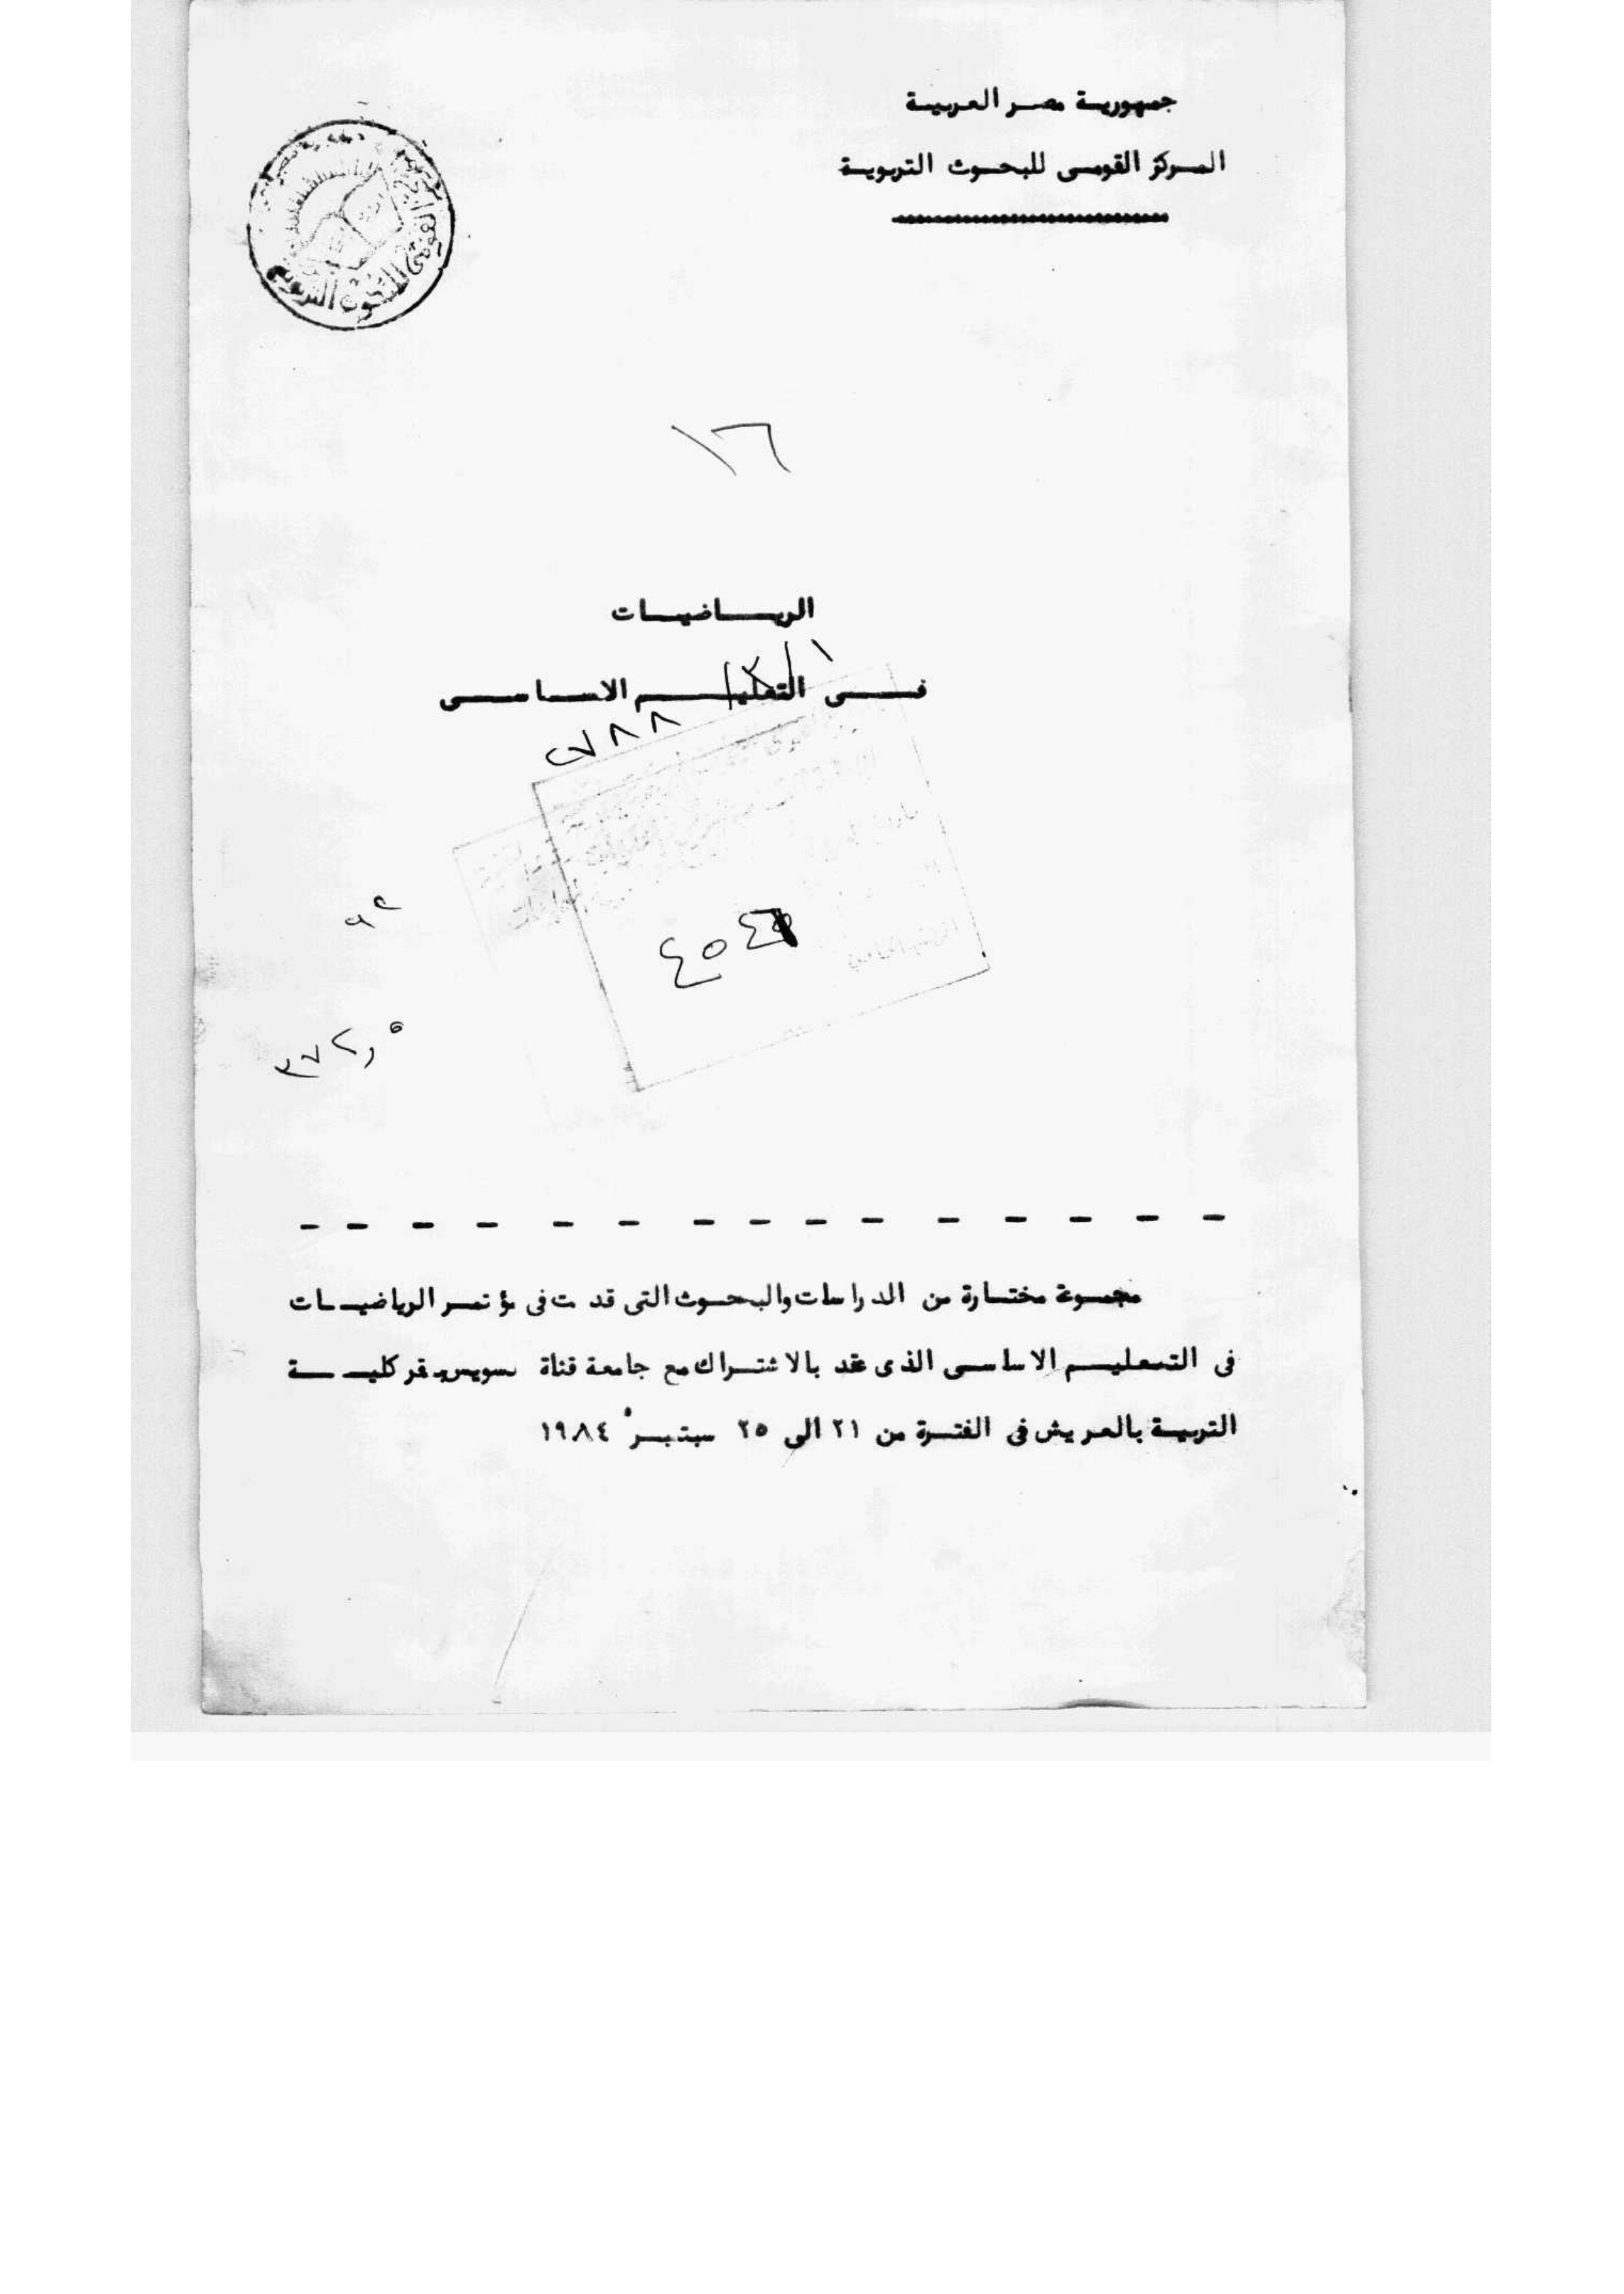 جمهورية مصر العربية
المركز القومى للبحوث التربوية
١٦
الرياضيات
فى التعليم الاساسى
مجموعة مختارة من الدراسات والبحوث التى قدمت فى مؤتمر الرياضيات
فى التعليم الاساسى الذى عقد بالاشتراك مع جامعة قناة سويس بمقر كلية
التربية بالعريش فى الفترة من ٢١ الى ٢٥ سبتمبر ١٩٨٤
٣٧٢,٥